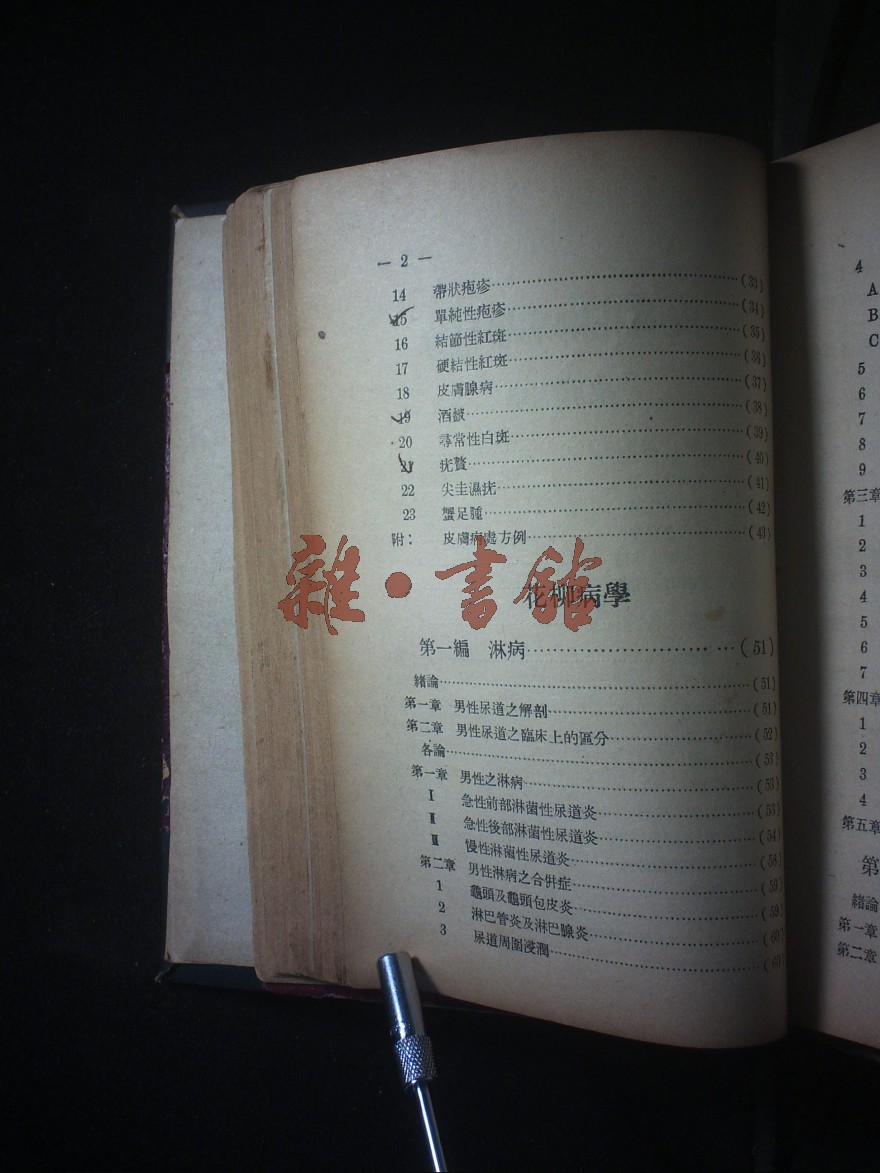 — 2 —
14 帶狀疱疹……(33)
15 單純性疱疹……(34)
16 結節性紅斑……(35)
17 硬結性紅斑……(36)
18 皮膚腺病……(37)
19 酒皶……(38)
20 尋常性白斑……(39)
21 疣贅……(40)
22 尖圭濕疣……(41)
23 蟹足腫……(42)
附: 皮膚病處方例……(43)
雜·書館
花柳病學
第一編 淋病……(51)
緒論……(51)
第一章 男性尿道之解剖……(51)
第二章 男性尿道之臨床上的區分……(52)
各論……(53)
第一章 男性之淋病……(53)
I 急性前部淋菌性尿道炎……(53)
II 急性後部淋菌性尿道炎……(54)
III 慢性淋菌性尿道炎……(58)
第二章 男性淋病之合併症……(59)
1 龜頭及龜頭包皮炎……(59)
2 淋巴管炎及淋巴腺炎……(60)
3 尿道周圍浸潤……(60)
4
A
B
C
5
6
7
8
9
第三章
1
2
3
4
5
6
7
第四章
1
2
3
4
第五章
第
緒論
第一章
第二章